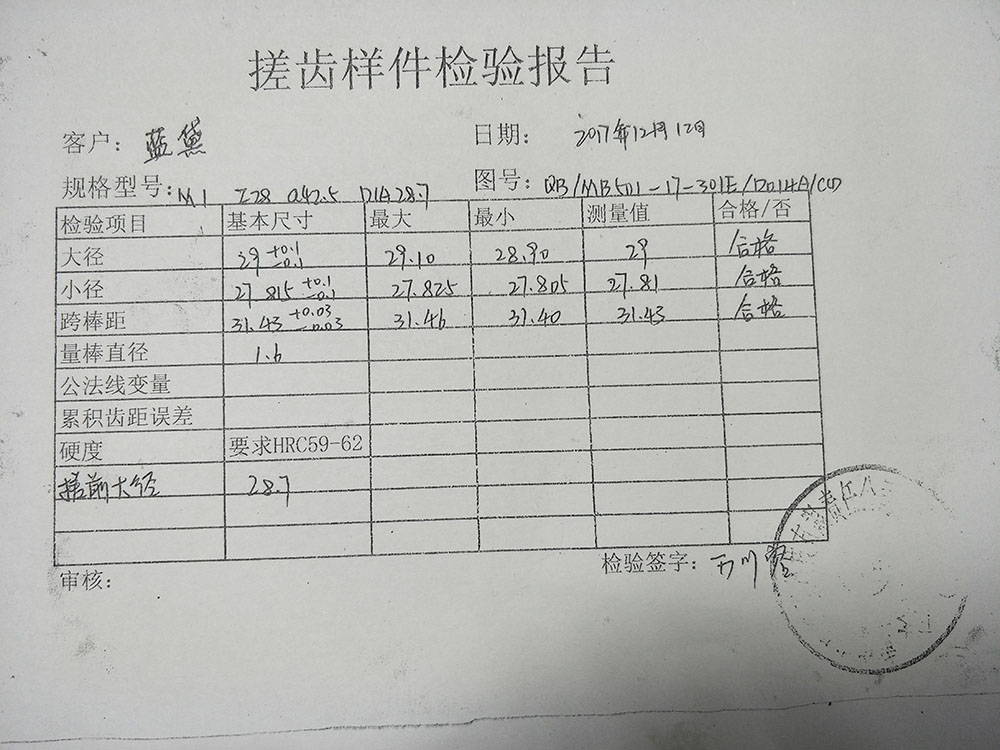 搓齿样件检验报告
客户: 蓝黛 日期: 2017年12月12日
规格型号: M1 Z28 α42.5 DIA28.7 图号: QB/MB501-17-301E/D014A/CD
检验项目 基本尺寸 最大 最小 测量值 合格/否
大径 29 +0.1 -0.1 29.10 28.90 29 合格
小径 27.815 +0.1 -0.1 27.825 27.805 27.81 合格
跨棒距 31.43 +0.03 -0.03 31.46 31.40 31.43 合格
量棒直径 1.6
公法线变量
累积齿距误差
硬度 要求HRC59-62
搓前大径 28.7
审核: 检验签字: